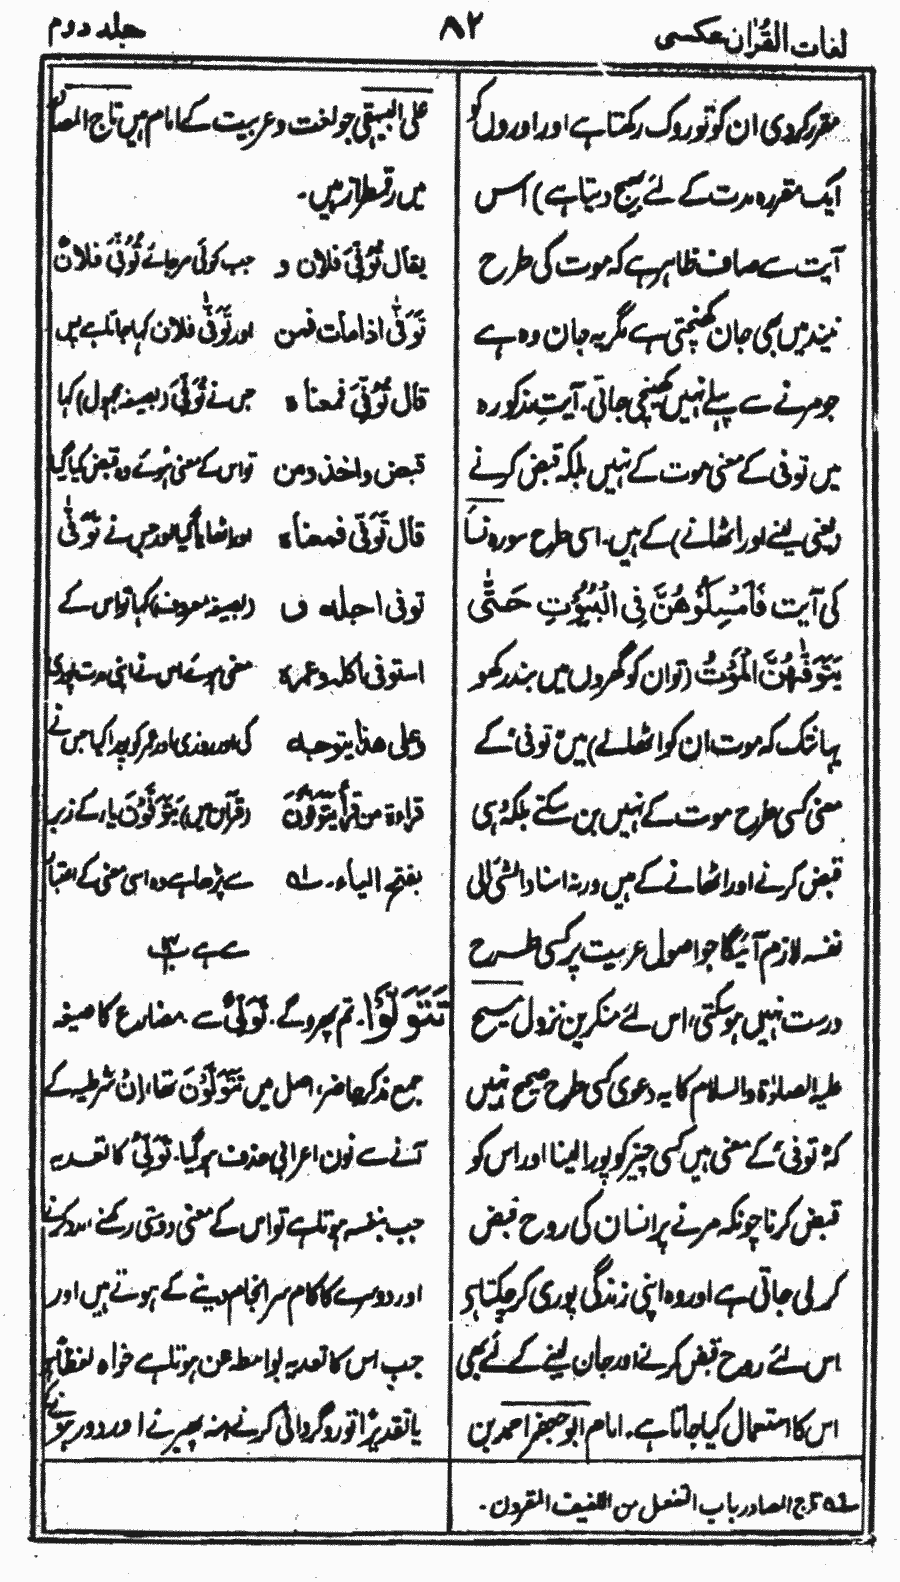 لغات القرآن عکسی
۸۲
جلد دوم
مقرر کردی ان کو تو روک رکھتا ہے اور اوروں کو
ایک مقررہ مدت کے لئے بھیج دیتا ہے) اس
آیت سے صاف ظاہر ہے کہ موت کی طرح
نیند میں بھی جان کھنچتی ہے مگر یہ جان وہ ہے
جو مرنے سے پہلے نہیں کھینچی جاتی۔ آیت مذکورہ
میں توفی کے معنی موت کے نہیں بلکہ قبض کرنے
(یعنی لینے اور اٹھانے) کے ہیں۔ اسی طرح سورہ نسآ
کی آیت فَاَمْسِكُوْهُنَّ فِی الْبُيُوْتِ حَتّٰى
يَتَوَفّٰهُنَّ الْمَوْتُ (تو ان کو گھروں میں بند رکھو
یہانتک کہ موت ان کو اٹھالے) میں توفی کے
معنی کسی طرح موت کے نہیں بن سکتے بلکہ وہی
قبض کرنے اور اٹھانے کے ہیں ورنہ اسناد الشئ الی
نفسہ لازم آئیگا جو اصول عربیت پر کسی طرح
درست نہیں ہو سکتی، اس لئے منکرین نزول مسیح
علیہ الصلوٰۃ والسلام کا یہ دعوی کسی طرح صحیح نہیں
کہ توفی کے معنی ہیں کسی چیز کو پورا لینا اور اس کو
قبض کرنا چونکہ مرنے پر انسان کی روح قبض
کر لی جاتی ہے اور وہ اپنی زندگی پوری کر چکتا ہے
اس لئے روح قبض کرنے اور جان لینے کے لئے بھی
اس کا استعمال کیا جاتا ہے۔ امام ابو جعفر احمد بن
علی البیہقی جو لغت و عربیت کے امام ہیں تاج المصادر
میں رقمطراز ہیں۔
یقال تُوُفِّیَ فلان و جب کوئی مرجائے تُوُفِّیَ فلانٌ
تَوَفّٰی اذا مات فمن اور تَوَفّٰی فلان کہا جاتا ہے پس
قال تُوُفِّیَ فمعناہ جس نے تُوُفِّیَ (بصیغہ مجہول) کہا
قبض واخذ ومن تو اس کے معنی ہوئے وہ قبض کیا گیا
قال تَوَفّٰی فمعناہ اور اٹھایا گیا اور جس نے تَوَفّٰی
توفی اجلہ و (بصیغہ معروف) کہا تو اس کے
استوفی اکلہ وعمرہ معنی ہوئے اس نے اپنی مدت پوری
وعلی ھذا یتوجہ کی اور روزی اور عمر کو پورا کیا جس نے
قراءة من قرأ یَتَوَفَّوْنَ (قرآن میں) یَتَوَفَّوْنَ یاء کے زبر
بفتح الیاء۔ لہ سے پڑھا ہے وہ اسی معنی کے اعتبار
سے ہے
تَتَوَلَّوْا۔ تم پھروگے۔ تَوَلِّیْ سے مضارع کا صیغہ
جمع مذکر حاضر، اصل میں تَتَوَلَّوْنَ تھا، اِنْ شرطیہ کے
آنے سے نون اعرابی حذف ہو گیا۔ تَوَلِّیْ کا تعدیہ
جب بنفسہ ہوتا ہے تو اس کے معنی دوستی رکھنے، مدد کرنے
اور دوسرے کا کام سر انجام دینے کے ہوتے ہیں اور
جب اس کا تعدیہ بواسطہ عن ہوتا ہے خواہ لفظاً ہو
یا تقدیرًا تو روگردانی کرنے منہ پھیرنے اور دور ہونے
لہ تاج المصادر باب التفعل من اللفیف المقرون۔